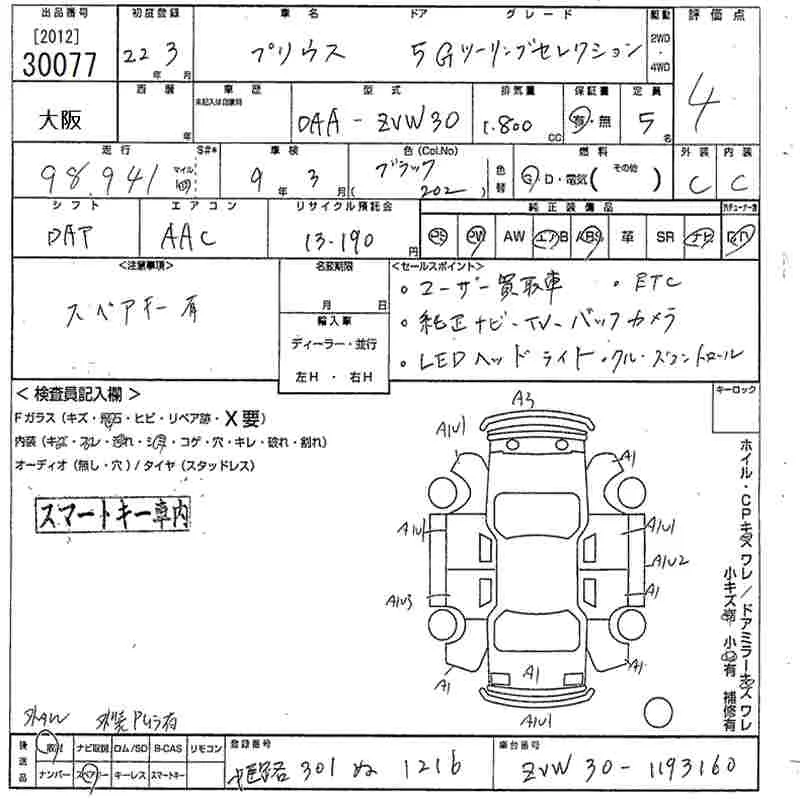 出品番号 初度登録 車名 ドア グレード 駆動 評価点
[2012] 30077 22年 3月 プリウス 5 Gツーリングセレクション 2WD・4WD 4
大阪 西暦 年 車歴 未記入は自家用 型式 DAA-ZVW30 排気量 1.800 CC 保証書 有・無 定員 5名
走行 98.941 マイル S#* 車検 9年 3月 色(Col.No) ブラック (202) 色替 燃料 G・D・電気( その他 ) 外装 C 内装 C
シフト DAT エアコン AAC リサイクル預託金 13-190円 純正装備品 PS PW AW エアB ABS 革 SR ナビ TV
<注意事項> 名変期限 <セールスポイント>
スペアキー有 月 日 ・ユーザー買取車 ・ETC
輸入車 ・純正ナビ-TV-バックカメラ
ディーラー・並行 ・LEDヘッドライト・クルーズコントロール
左H・右H
<検査員記入欄> キーロック
Fガラス(キズ・飛石・ヒビ・リペア跡・X要)
内装(キズ・スレ・汚れ・シミ・コゲ・穴・キレ・破れ・割れ)
オーディオ(無し・穴)/タイヤ(スタッドレス)
スマートキー車内
A3
A1U1 A1
A1U1 A1U1
A1U2
A1U3 A1
A1 A1 A1
A1U1
ホイル・CPキズ ワレ/ドアミラーキズ ワレ
小キズ有 小凹有 補修有
外AW 外装PMラ有
後送品 取説 ナビ取説 ロム/SD B-CAS リモコン 登録番号 車台番号
ナンバー スペアキー キーレス スマートキー 姫路 301 ぬ 1216 ZVW30-1193160